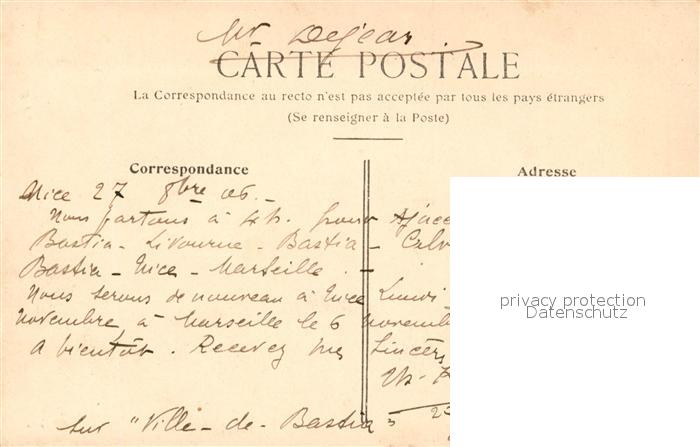 Mr Dejean
CARTE POSTALE
La Correspondance au recto n'est pas acceptée par tous les pays étrangers
(Se renseigner à la Poste)
Correspondance
Adresse
Nice 27 8bre 06.-
Nous partons à 4h. pour Ajacc
Bastia - Livourne - Bastia - Calv
Bastia - Nice - Marseille. -
Nous serons de nouveau à Nice Lundi
novembre, à Marseille le 6 novemb
A bientôt. Recevez mes sincères
sur "Ville-de-Bastia"
privacy protection
Datenschutz